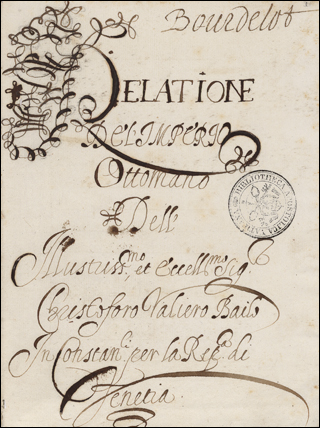 Bourdelot
RELATIONE
DEL IMPERIO
Ottomano
Dell
Illustriss.mo et eccell.mo Sig.r
Christoforo Valiero Bailo
In Constan.li per la Rep.ca di
Venetia.